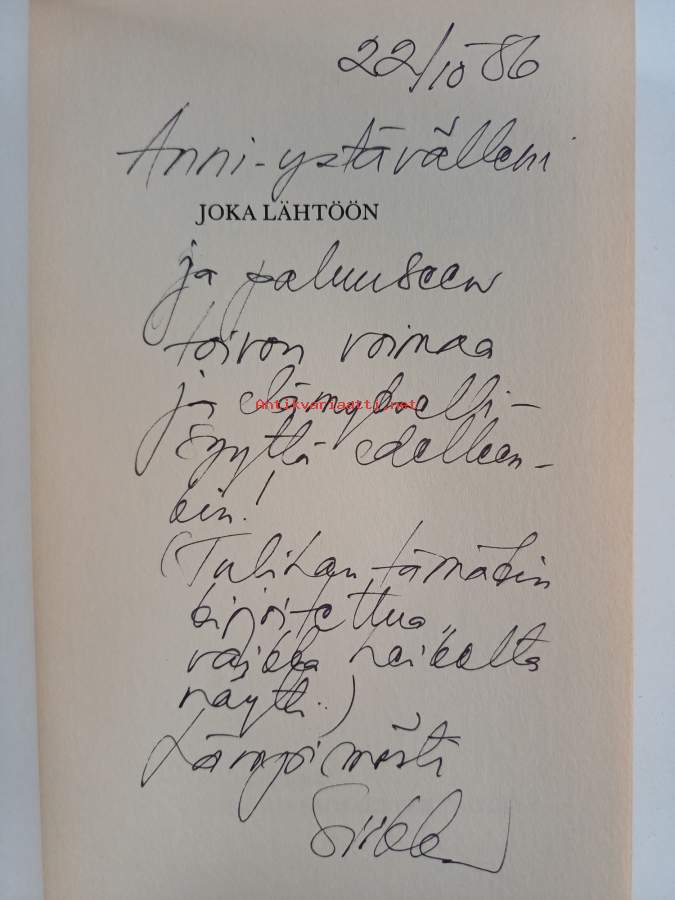 22/10 86
Anni-ystävälleni
JOKA LÄHTÖÖN
ja paluuseen
toivon voimaa
ja elämykselli-
Antikvariaatti.net
syyttä edelleen-
kin!
(Tulihan tämäkin
kirjoitettua
vaikka heikolta
näytti..)
Lämpimästi
Sirkka